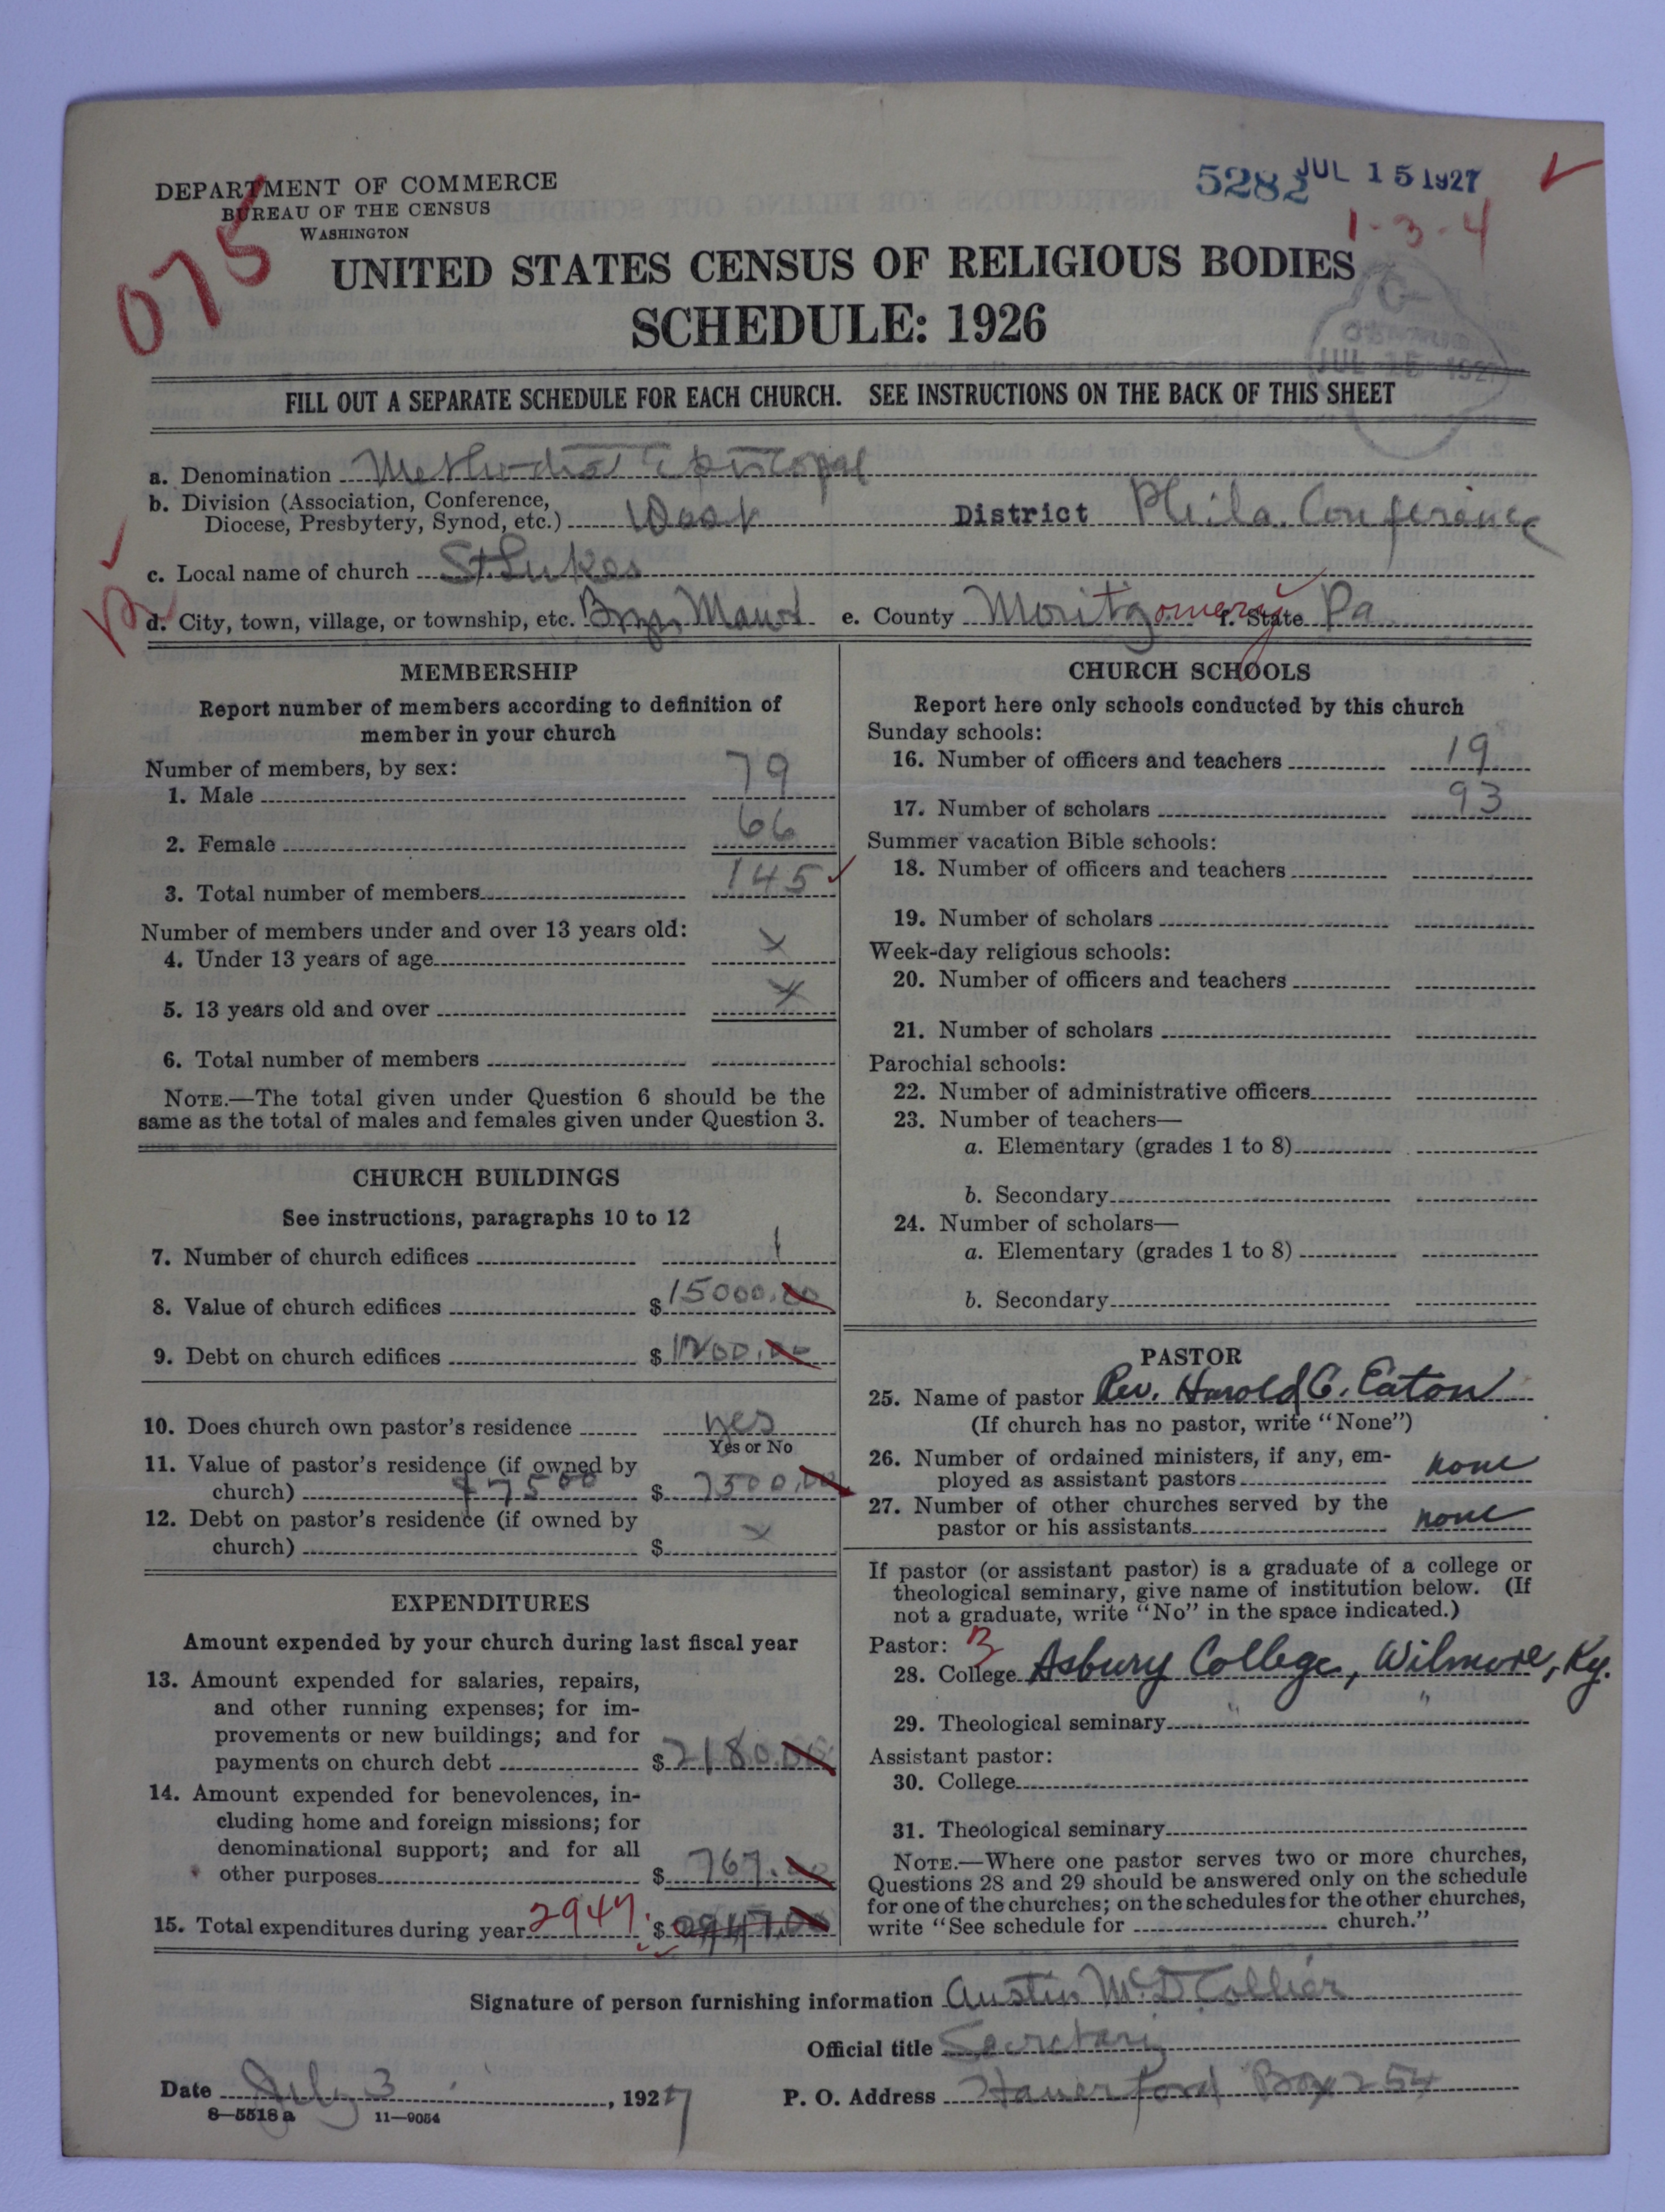 DEPARTMENT OF COMMERCE
BUREAU OF THE CENSUS
WASHINGTON
5282 JUL 15 1927
1-3-4
075
UNITED STATES CENSUS OF RELIGIOUS BODIES
SCHEDULE: 1926
JUL 15 1927
FILL OUT A SEPARATE SCHEDULE FOR EACH CHURCH. SEE INSTRUCTIONS ON THE BACK OF THIS SHEET
a. Denomination Methodist Episcopal
b. Division (Association, Conference,
Diocese, Presbytery, Synod, etc.) West District Phila. Conference
c. Local name of church St. Lukes
d. City, town, village, or township, etc. Bryn Mawr e. County Montgomery f. State Pa
MEMBERSHIP
Report number of members according to definition of
member in your church
Number of members, by sex:
1. Male 79
2. Female 66
3. Total number of members 145
Number of members under and over 13 years old:
4. Under 13 years of age x
5. 13 years old and over x
6. Total number of members
NOTE.—The total given under Question 6 should be the
same as the total of males and females given under Question 3.
CHURCH BUILDINGS
See instructions, paragraphs 10 to 12
7. Number of church edifices 1
8. Value of church edifices $ 15000.00
9. Debt on church edifices $ 1200.00
10. Does church own pastor's residence yes
Yes or No
11. Value of pastor's residence (if owned by
church) $7500 $ 7500.00
12. Debt on pastor's residence (if owned by
church) $ x
EXPENDITURES
Amount expended by your church during last fiscal year
13. Amount expended for salaries, repairs,
and other running expenses; for im-
provements or new buildings; and for
payments on church debt $ 2180.00
14. Amount expended for benevolences, in-
cluding home and foreign missions; for
denominational support; and for all
other purposes $ 767.00
15. Total expenditures during year 2947. $ 2947.00
CHURCH SCHOOLS
Report here only schools conducted by this church
Sunday schools:
16. Number of officers and teachers 19
17. Number of scholars 93
Summer vacation Bible schools:
18. Number of officers and teachers
19. Number of scholars
Week-day religious schools:
20. Number of officers and teachers
21. Number of scholars
Parochial schools:
22. Number of administrative officers
23. Number of teachers—
a. Elementary (grades 1 to 8)
b. Secondary
24. Number of scholars—
a. Elementary (grades 1 to 8)
b. Secondary
PASTOR
25. Name of pastor Rev. Harold C. Eaton
(If church has no pastor, write "None")
26. Number of ordained ministers, if any, em-
ployed as assistant pastors none
27. Number of other churches served by the
pastor or his assistants none
If pastor (or assistant pastor) is a graduate of a college or
theological seminary, give name of institution below. (If
not a graduate, write "No" in the space indicated.)
Pastor: 3
28. College Asbury College, Wilmore, Ky.
29. Theological seminary " "
Assistant pastor:
30. College
31. Theological seminary
NOTE.—Where one pastor serves two or more churches,
Questions 28 and 29 should be answered only on the schedule
for one of the churches; on the schedules for the other churches,
write "See schedule for church."
Signature of person furnishing information Austin McD. Collier
Official title Secretary
Date July 3, 1927 P. O. Address Haverford Box 254
8—5518 a 11—9054